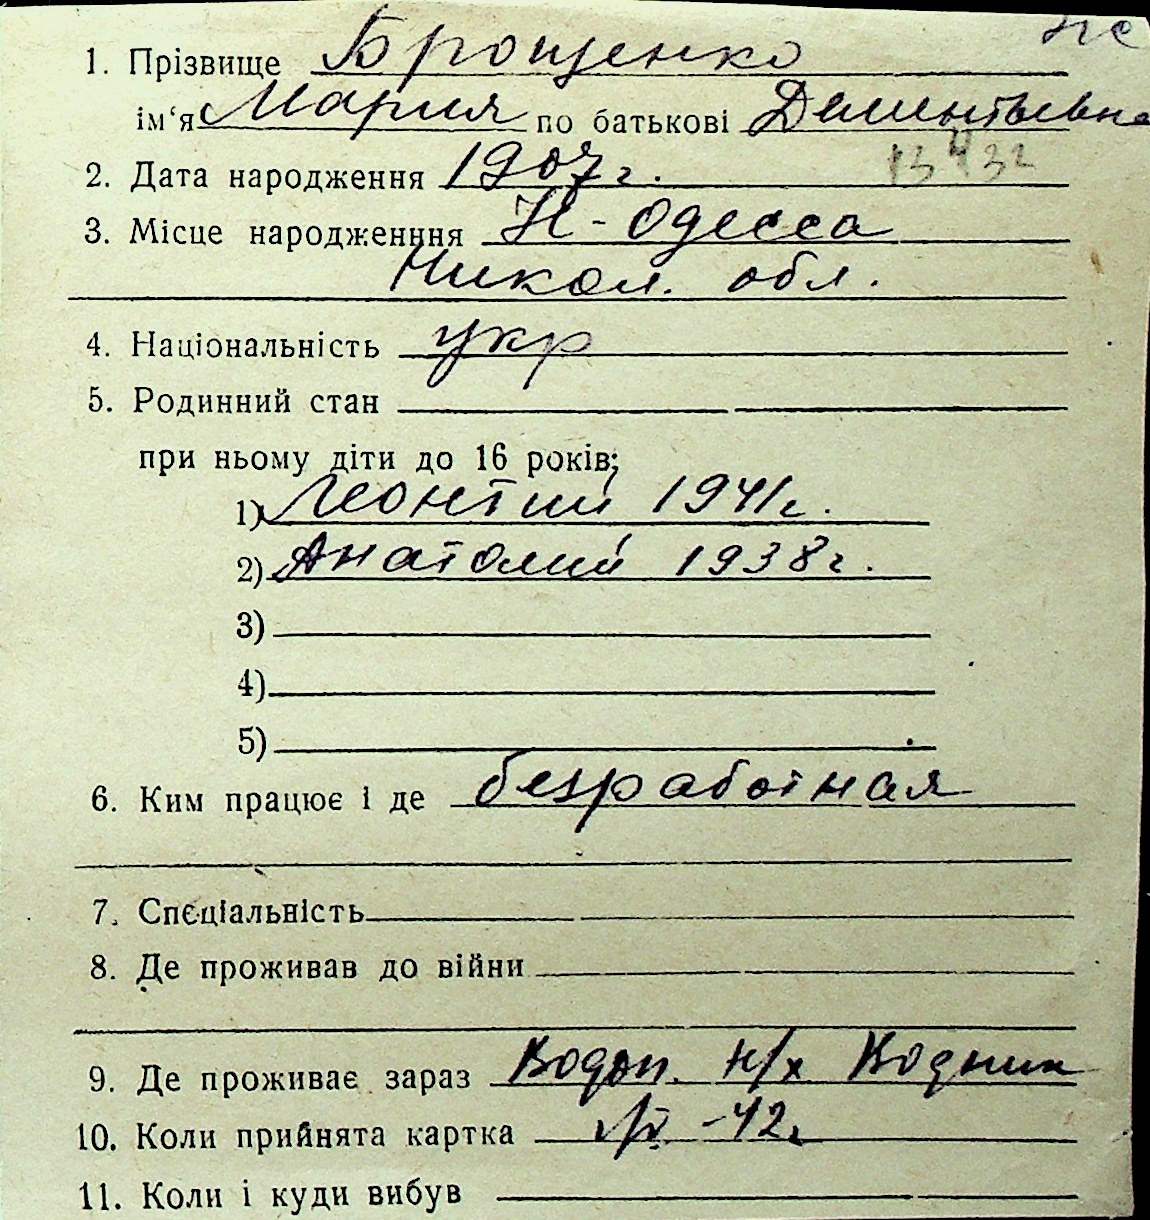 1. Прізвище Брощенко
ім‘я Мария по батькові Дементьевна
2. Дата народження 1907 г.
3. Місце народженння Н-Одесса
Никол. обл.
4. Національність укр
5. Родинний стан
при ньому діти до 16 років;
1) Леонтий 1941 г.
2) Анатолий 1938 г.
3)
4)
5)
6. Ким працює і де безработная
7. Спеціальність
8. Де проживав до війни
9. Де проживає зараз Водоп. Н/х Водник
10. Коли прийнята картка -42
11. Коли і куди вибув